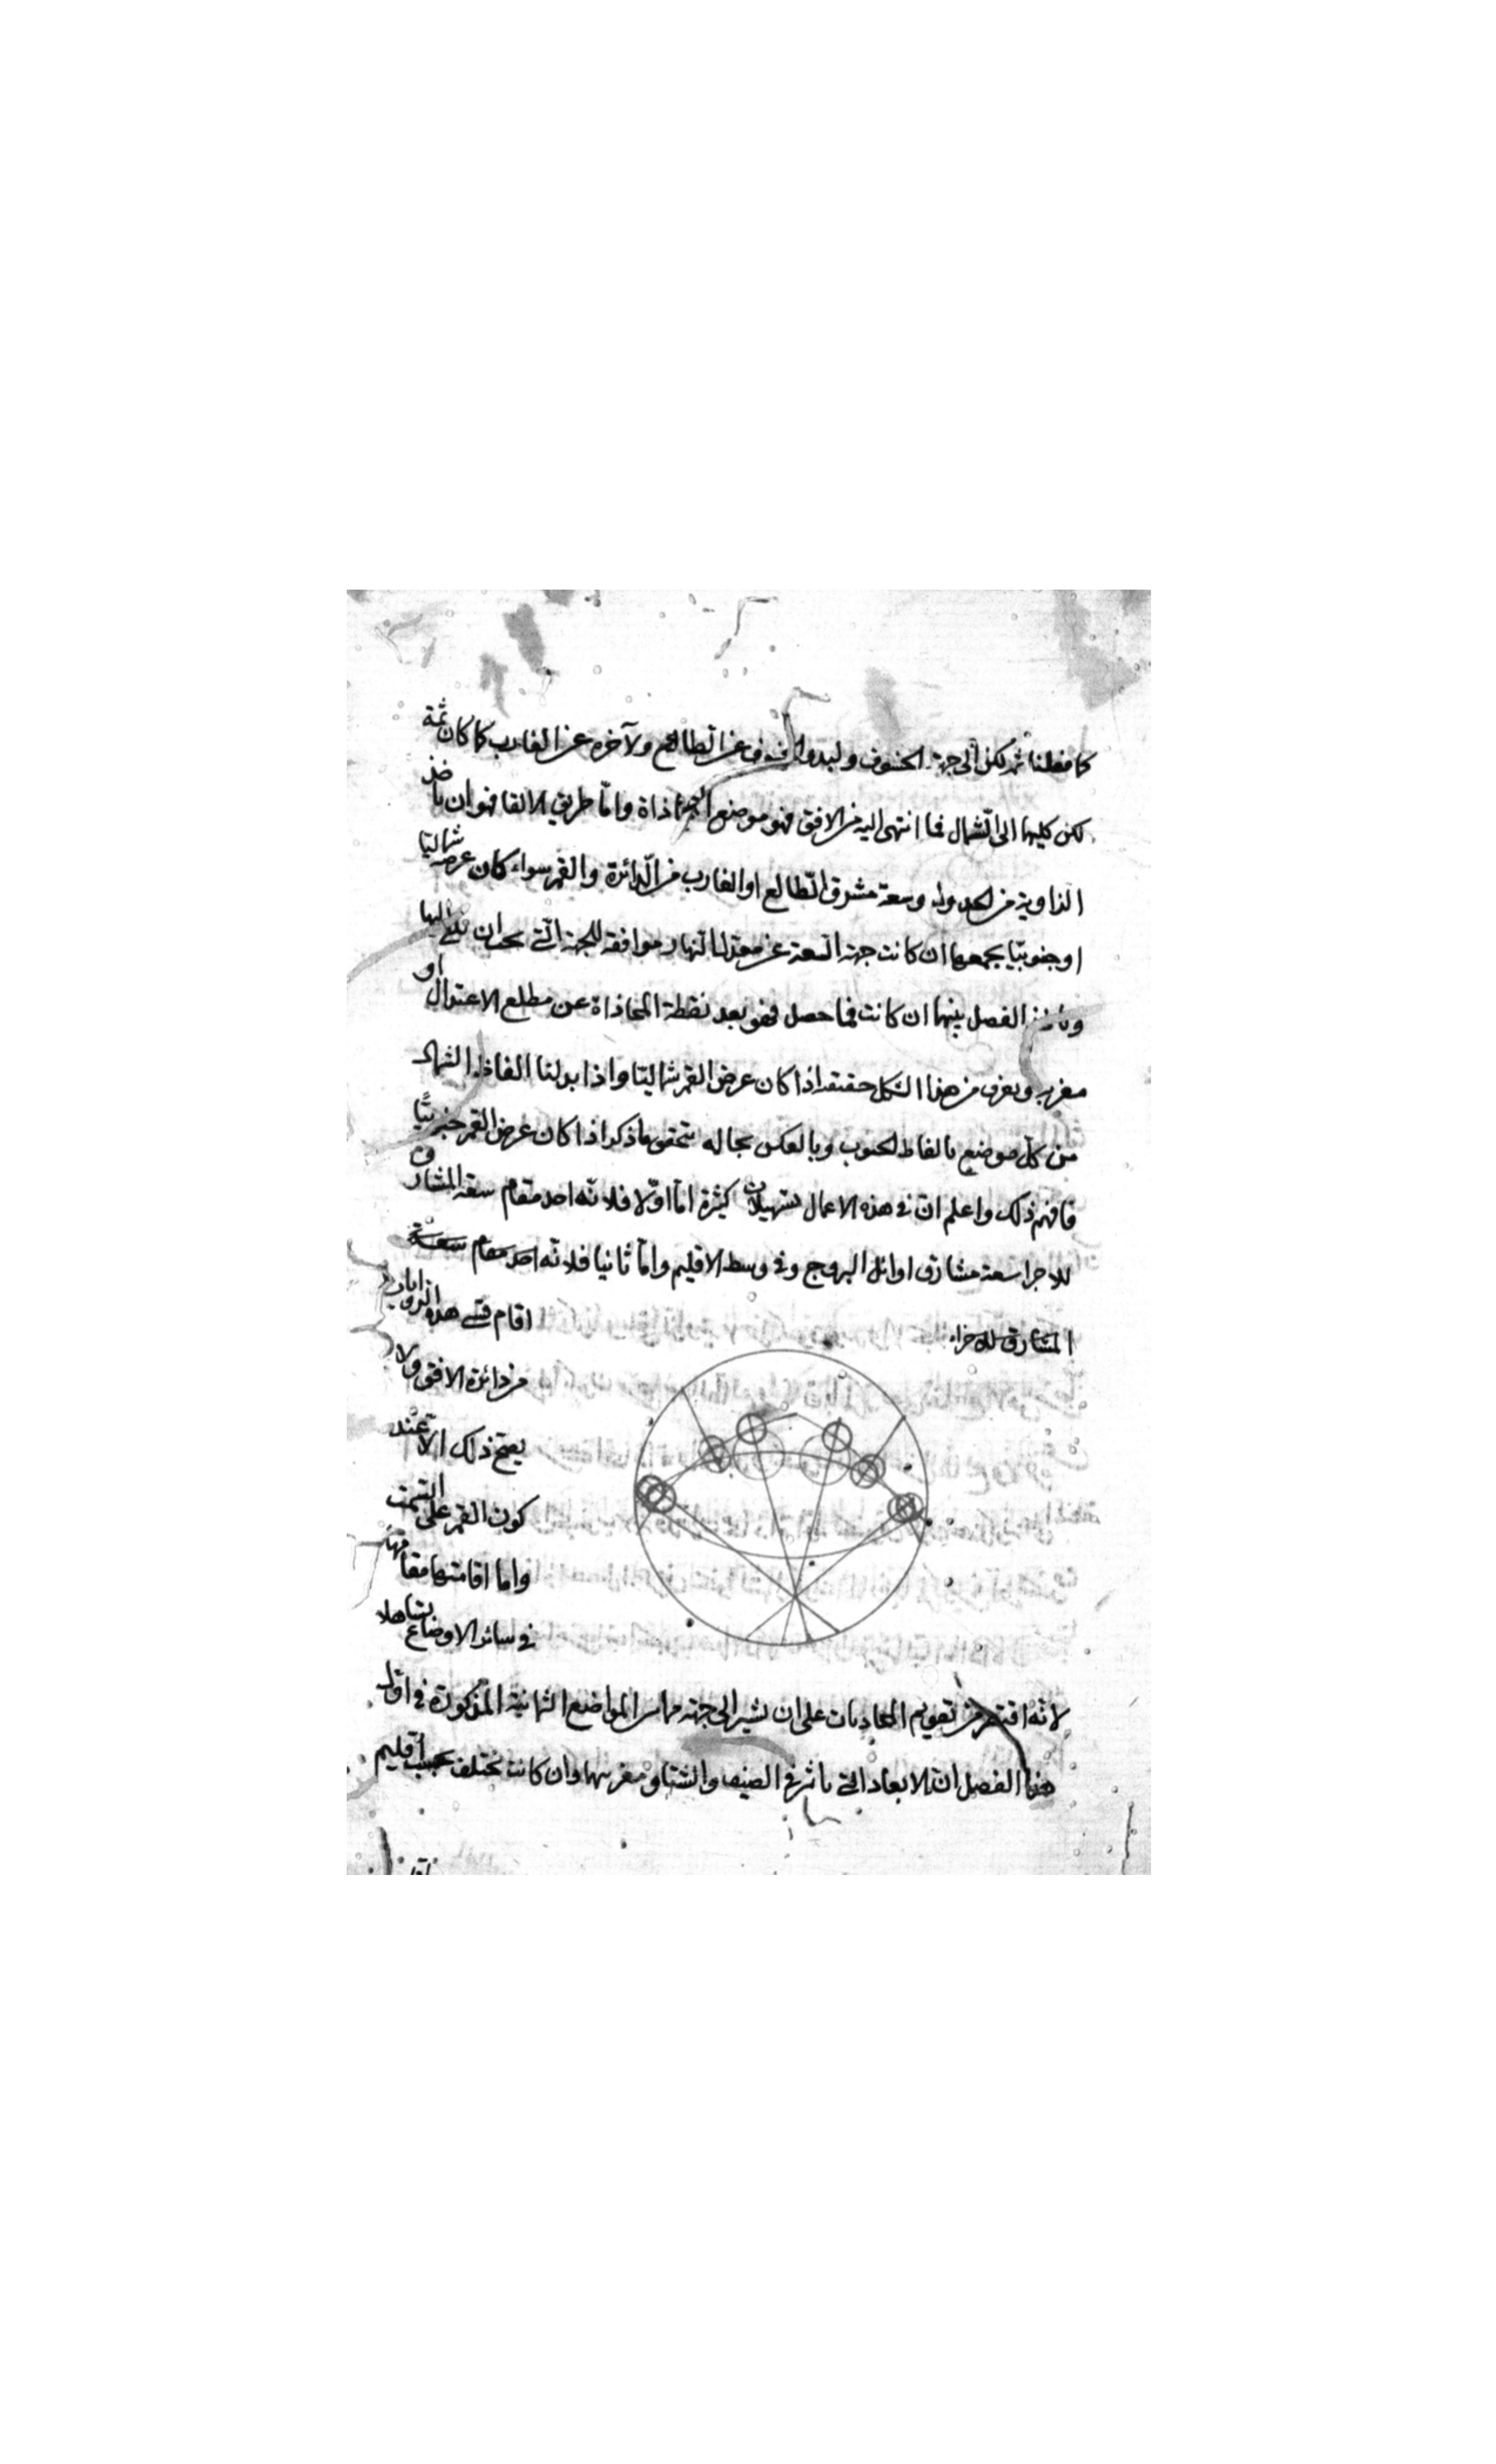 كما فعلنا ثم لكن الى جهة الخسوف ولبدو عن الطالع ولآخره عن الغارب كما كان ثمة
لكن كليهما الى الشمال فما انتهى اليه من الافق فهو موضع المحاذاة واما طريق الالقا فهو ان ناخذ
الزاوية من الجدول وسعة مشرق الطالع او الغارب من الدائرة والقمر سواء كان عرضه شماليا
او جنوبيا يجمعهما ان كانت جهة السعة عن معدل النهار موافقة للجهة التي يجب ان اليها
وناخذ الفصل بينهما ان كانت فما حصل فهو بعد نقطة المحاذاة عن مطلع الاعتدال او
مغربه ويعرف من هذا الشكل حقيقة اذا كان عرض القمر شماليا واذا بدلنا الفاظ الشمال
من كل موضع بالفاظ الجنوب وبالعكس بحاله تحقق ما ذكر اذا كان عرض القمر جنوبيا
فافهم ذلك واعلم ان في هذه الاعمال تسهيلات كثيرة اما اولا فلانه اخذ مقام سعة المشارق
للاجزا سعة مشارق اوائل البروج وفي وسط الاقليم واما ثانيا فلانه اخذ مقام سعة
المشارق للاجزاء
اقام قسي هذه الزوايا
من دائرة الافق ولا
يصح ذلك الا عند
كون القمر على السمت
واما اقامتها مقامها
في سائر الاوضاع بتساهلا
لانه اقتصر من تقويم المحاذيات على ان نشير الى جهة المواضع الثمانية المذكورة في اول
هذا الفصل ان الابعاد التي في الصيف والشتا ومغربيهما وان كانت تختلف بحسب اقليم